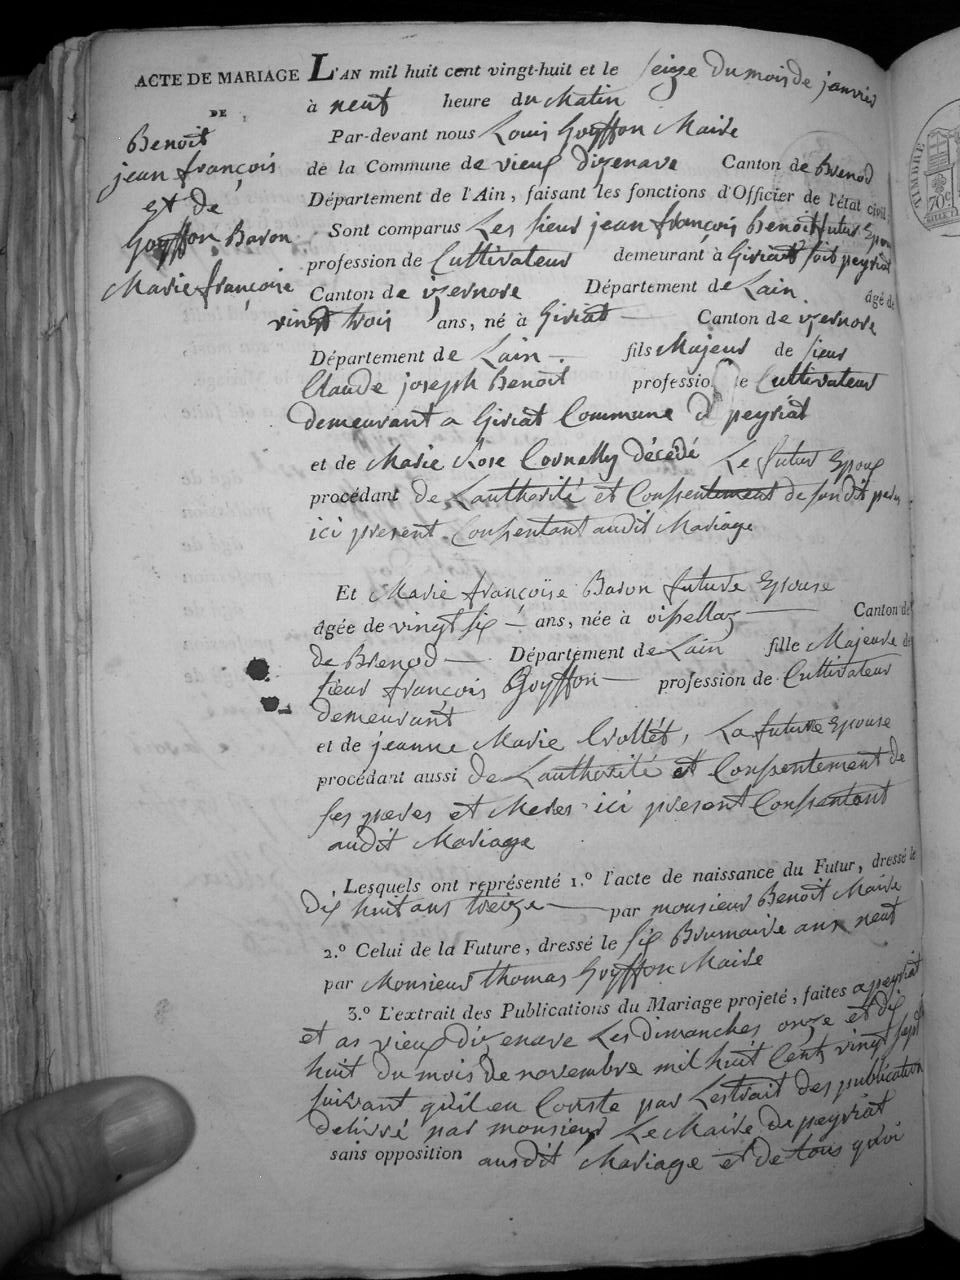 ACTE DE MARIAGE
DE
Benoit
jean françois
et de
Goyffon Baron
Marie françoise
L'AN mil huit cent vingt-huit et le seize du mois de janvier
à neuf heure du Matin
Par-devant nous Louis Goyffon Maire
de la Commune de vieux dizenave Canton de Brenod
Département de l'Ain, faisant les fonctions d'Officier de l'état civil
Sont comparus Les sieur jean françois Benoit futur Epou
profession de Cultivateur demeurant à Giriat sois peyriat
Canton de izernore Département de Lain. âgé de
vingt trois ans, né à Giriat Canton de yzernore
Département de Lain. fils Majeur de sieur
Claude joseph Benoit profession de Cultivateur
demeurant a Giriat Commune d peyriat
et de Marie Rose Cornelly décédé Le futur Epoux
procédant de Lauthorité et Consentement de sondit pere
ici present Consentant audit Mariage
Et Marie françoise Baron future Epouse
âgée de vingt six ans, née à oisellaz Canton de
de Brenod Département de Lain fille Majeure de
sieur françois Goyffon profession de Cultivateur
demeurant
et de jeanne Marie Crollet, La future Epouse
procédant aussi de Lauthorité et Consentement de
ses peres et Meres ici present Consentant
audit Mariage
Lesquels ont représenté 1.º l'acte de naissance du Futur, dressé le
dix huit ans treize par monsieur Benoit Maire
2.º Celui de la Future, dressé le six Brumaire anx neuf
par Monsieur thomas Goyffon Maire
3.º L'extrait des Publications du Mariage projeté, faites a peyriat
et as vieux dizenave Les dimanches onze et dix
huit du mois de novembre mil huit Cent vingt sept
suivant quil en Conste par Lextrait des publication
delivré par monsieur Le Maire du peyriat
sans opposition ausdit Mariage et de tous quoi
TIMBRE
70c